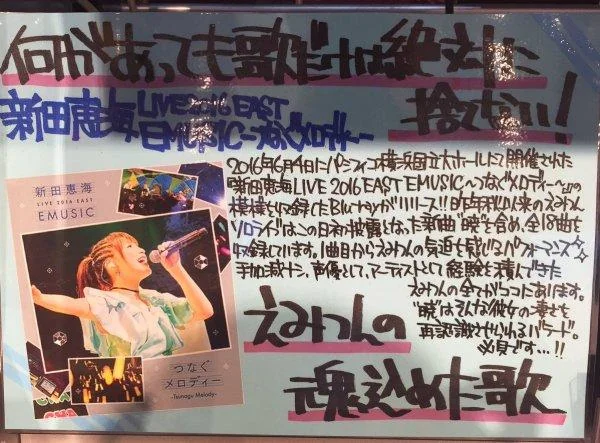 何があっても歌だけは絶対に
捨てない!
新田恵海 LIVE 2016 EAST
EMUSIC〜つなぐメロディー〜
2016年6月4日にパシフィコ横浜国立大ホールにて開催された
『新田恵海 LIVE 2016 EAST EMUSIC〜つなぐメロディー〜』の
模様を収録したBlu-rayがリリース!!昨年秋以来のえみつん
ソロライブはこの日初披露となった新曲"暁"を含め、全18曲を
収録しています。1曲目からえみつんの気迫を感じるパフォーマンス
手加減ナシ。声優として、アーティストとして経験を積んできた
えみつんの全てが1つにあります。
"暁"はそんな彼女の凄さを
再認識させられるバラード。
必見です…!!
えみつんの
魂込めた歌
新田恵海
LIVE 2016 EAST
EMUSIC
つなぐ
メロディー
-Tsunagu Melody-